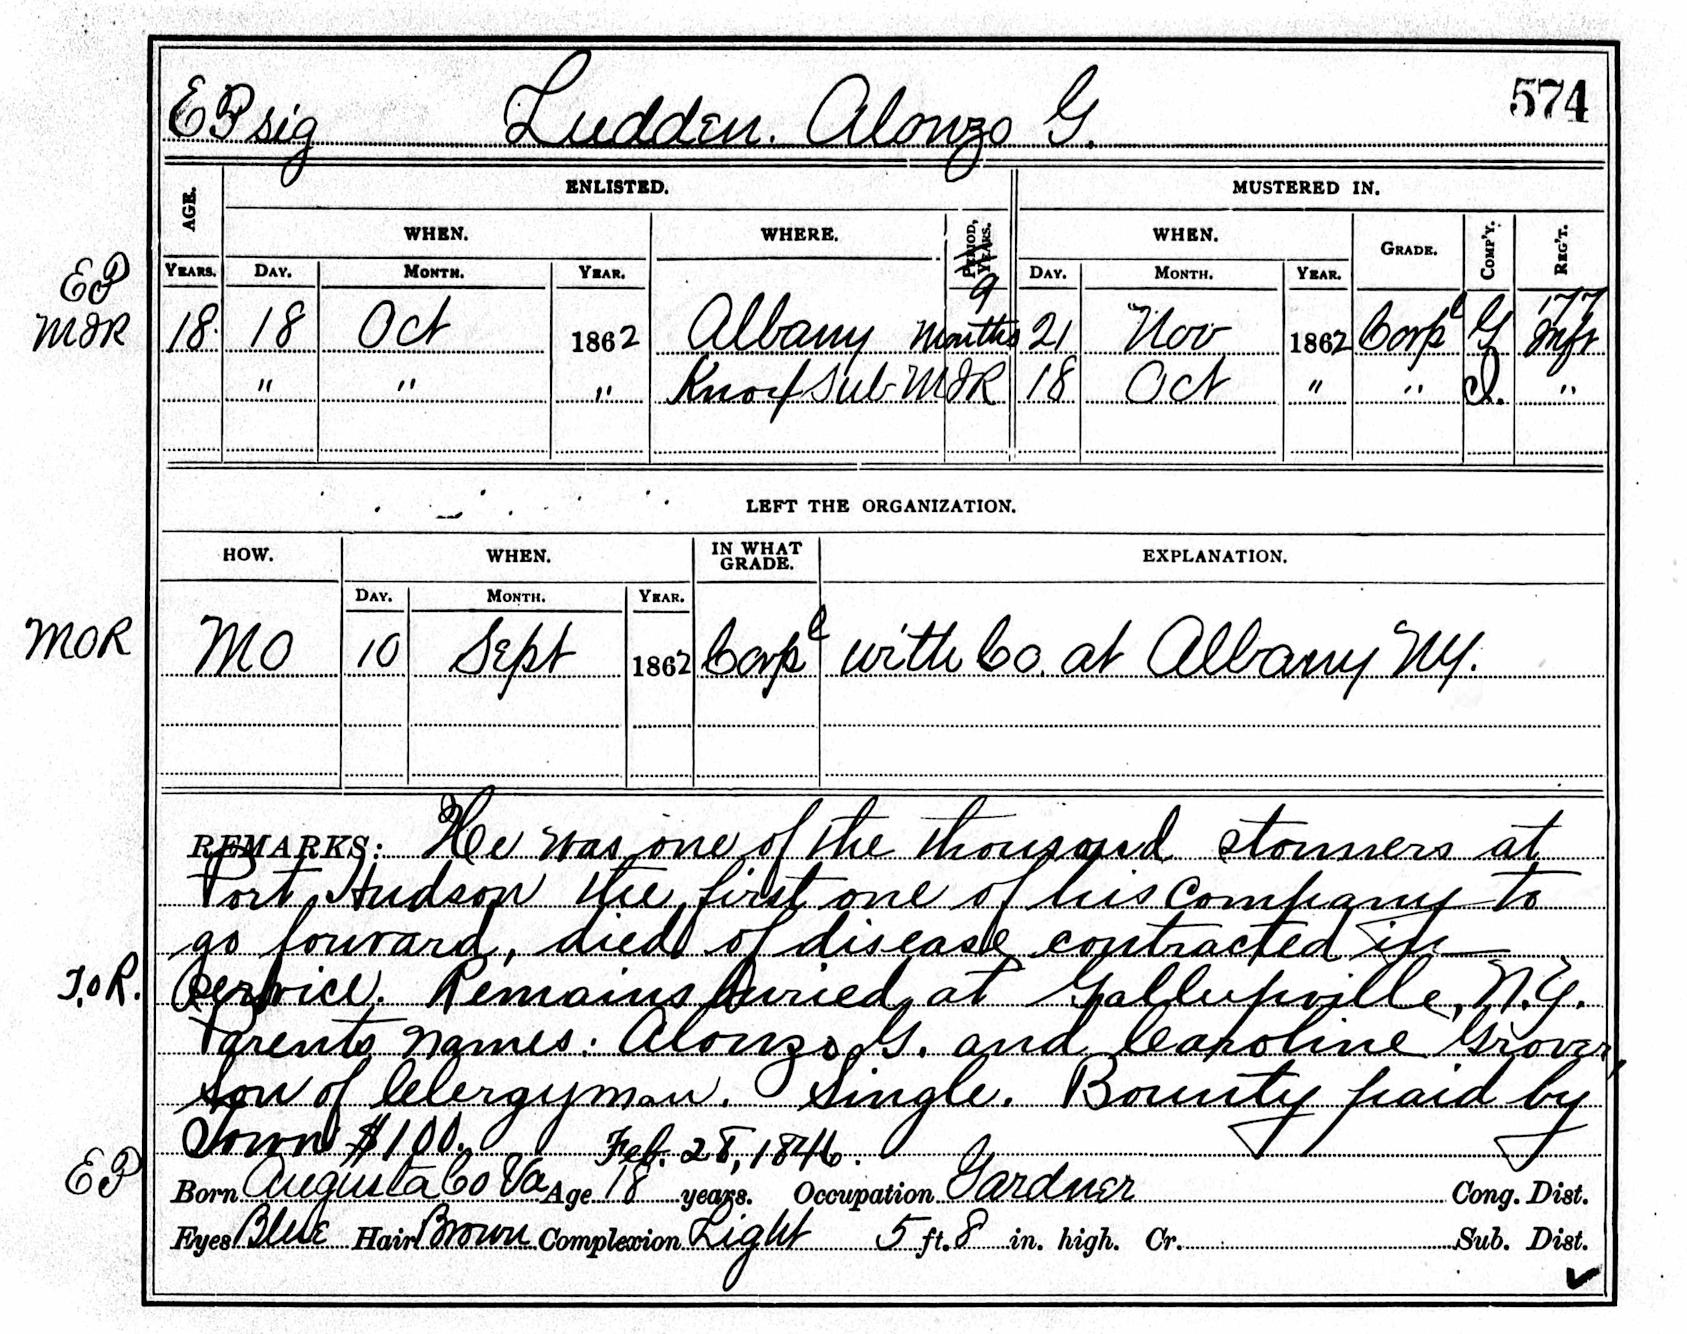 EP sig Ludden. Alonzo G. 574
ENLISTED. MUSTERED IN.
AGE. WHEN. WHERE. PERIOD, YEARS. WHEN. GRADE. COMP'Y. REG'T.
YEARS. DAY. MONTH. YEAR. DAY. MONTH. YEAR.
EP 9 177
MIR 18. 18 Oct 1862 Albany Months 21 Nov 1862 Corpl G Infr
" " " Knox Sub MIR 18 Oct " " I. "
LEFT THE ORGANIZATION.
HOW. WHEN. IN WHAT GRADE. EXPLANATION.
DAY. MONTH. YEAR.
MOR MO 10 Sept 1862 Corpl with Co. at Albany NY.
REMARKS: He was one of the thousand stormers at
Port Hudson the first one of his company to
go forward, died of disease contracted in
T.O.R. service. Remains buried at Gallupville, N.Y.
Parents names: Alonzo G. and Caroline Grover,
son of Clergyman. Single. Bounty paid by
Town $100. Feb. 28, 1846.
EP Born Augusta Co Va Age 18 years. Occupation Gardner Cong. Dist.
Eyes Blue Hair Brown Complexion Light 5 ft. 8 in. high. Cr. Sub. Dist.